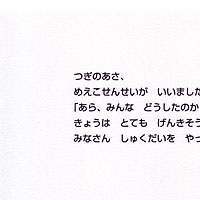 つぎのあさ、
めえこせんせいが　いいました
「あら、みんな　どうしたのか
きょうは　とても　げんきそう
みなさん　しゅくだいを　やっ